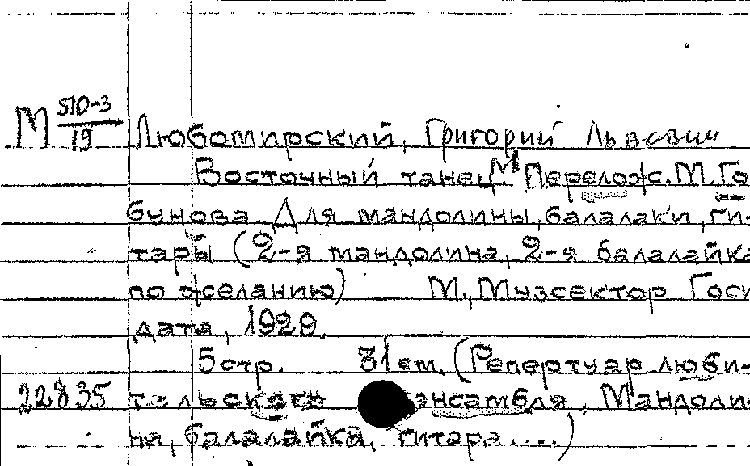 М 510-3/19 Любомирский, Григорий Львович
Восточный танец Перелож. М. Го
бунова Для мандолины, балалаки, ги-
тары (2-я мандолина, 2-я балалайка
по желанию) М., Музсектор Госи
дата, 1929.
5стр. 31см. (Репертуар люби-
22835 тельского ансамбля. Мандоли-
на, балалайка, гитара....)